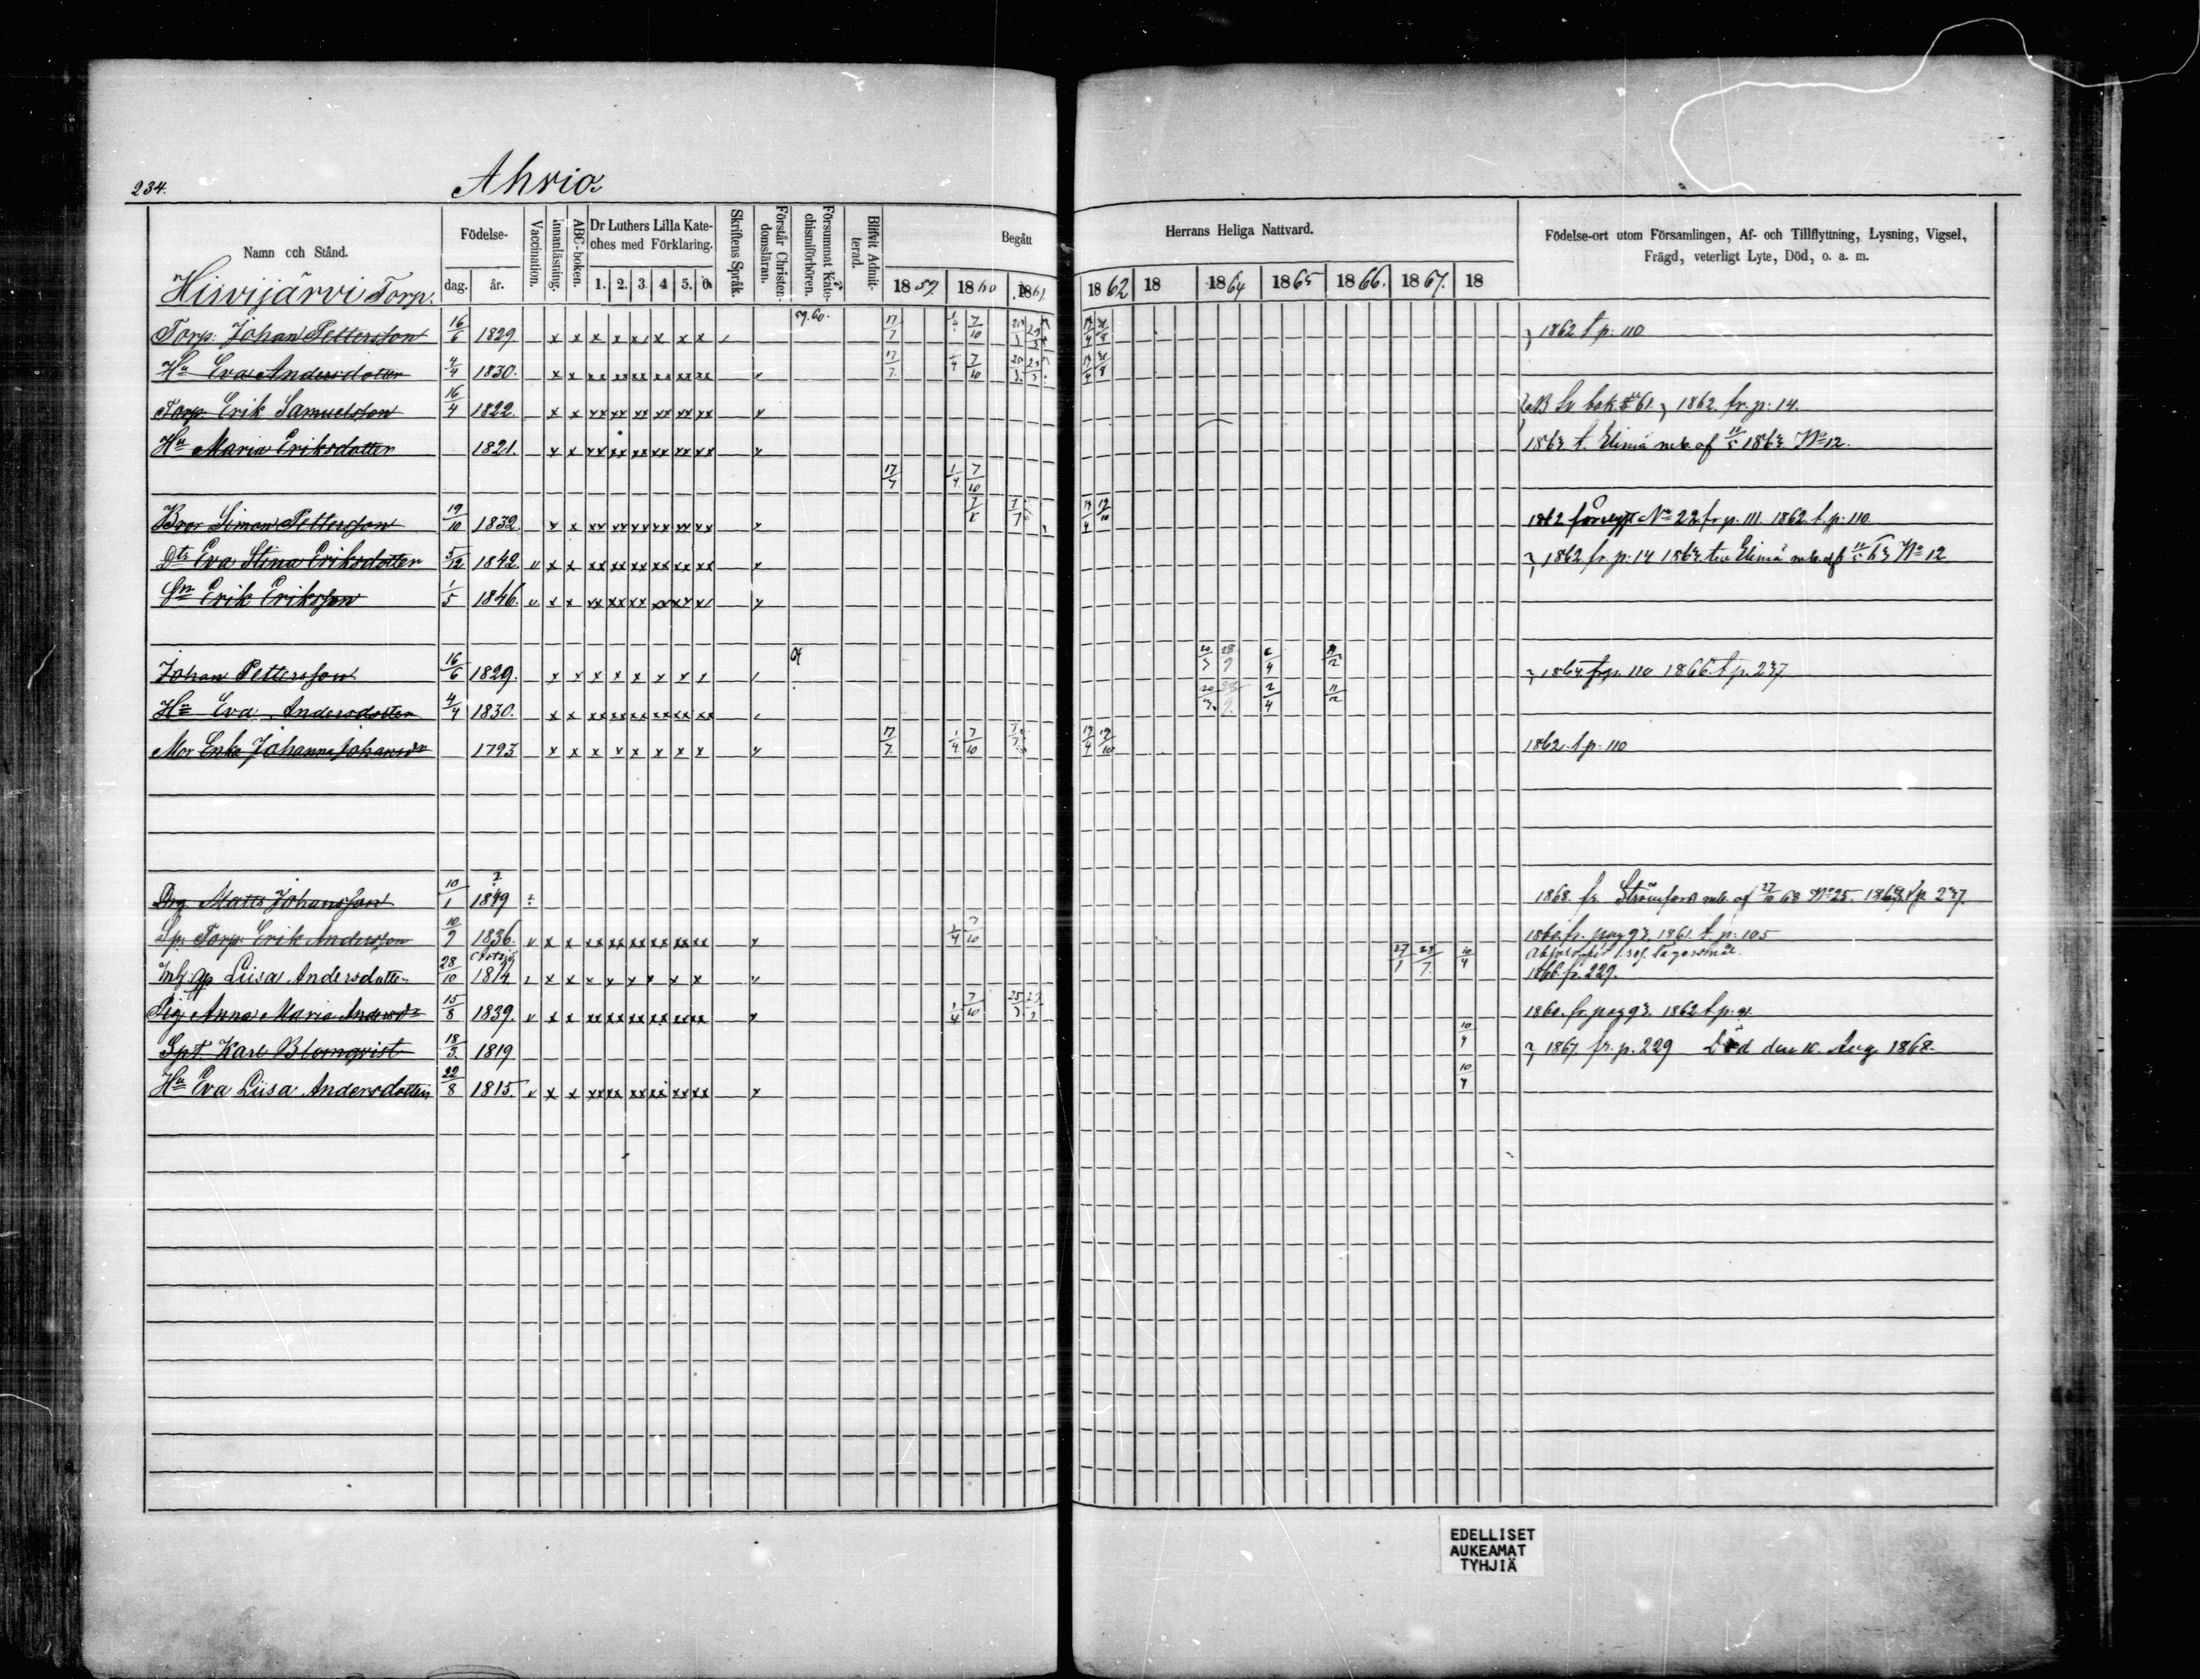 234. Ahvio
Namn och Stånd. Födelse- dag. år. Vaccination. Innanläsning. ABC-boken. Dr Luthers Lilla Kateches med Förklaring. 1. 2. 3. 4 5. 6. Skriftens Språk. Förstår Christendomsläran. Försummat Katechismiförhören. Blifvit Admitterad. Begått
Herrans Heliga Nattvard. Födelse-ort utom Församlingen, Af- och Tillflyttning, Lysning, Vigsel,
Frägd, veterligt Lyte, Död, o. a. m.
Hirvijärvi Torp. 1859. 1860 1861. 1862 18 1864 1865 1866. 1867. 18
Torp. Johan Pettersson 16/6 1829. x x x x x x x x 59.60. 17/7 1/4 7/10 1862 t p. 110
Hu Eva Andersdotter 4/4 1830. x x xx xx xx xx xx xx 17/7 1/4 7/10
Torp. Erik Samuelsson 16/4 1822. x x xx xx xx xx xx xx 1862. fr. p. 14.
Hu Maria Eriksdotter 1821. x x xx xx xx xx xx xx 1863. t. Elimä mb. af 1863. No 12.
17/7 1/4 7/10
Bror Simon Pettersson 19/10 1832. x x xx xx xx xx xx xx No 22 fr p. 111. 1862. t. p. 110
Dtr Eva Stina Eriksdotter 5/12 1842. v x x xx xx xx xx xx xx 1862 fr. p. 14 1863. Elimä mb. af 63 No 12
Sn Erik Eriksson 1/5 1846. v x x xx xx xx xx xx
Johan Pettersson 16/6 1829. x x x x x x x 20/3 28/9 2/4 11/2 1864 fr p. 110 1866. t p. 237
Hu Eva Andersdotter 4/4 1830. x x xx xx xx xx xx xx 20/3 2/4 11/2
Mor Enka Johanna Johansdr 1793 x x x x x x x x 17/7 1/4 7/10 1862. t p. 110
Drg Matts Johansson 10/1 1849 ? 1868. fr. Strömfors mb. af 27/10 68 No 25. 1869. t p. 237.
Sp. Torp. Erik Andersson 10/9 1836. v x x xx xx xx xx xx xx 1/4 7/10 1860. fr. pag 93. 1861. t. p. 105
Inh: gp Liisa Andersdotter 28/10 1814 x x x x x x x x 10/4 1866. fr. 229.
Pig. Anna Maria Andersdr 15/8 1839. v x x xx xx xx xx xx xx 1/4 7/10 1860. fr. pag 93. 1862 t. p.
Spt. Karl Blomqvist 18/3. 1819 10/4 1867. fr. p. 229 Död den 16. Aug 1868.
Hu Eva Liisa Andersdotter 22/8 1815. v x x xx xx xx xx xx xx 10/4
EDELLISET
AUKEAMAT
TYHJIÄ